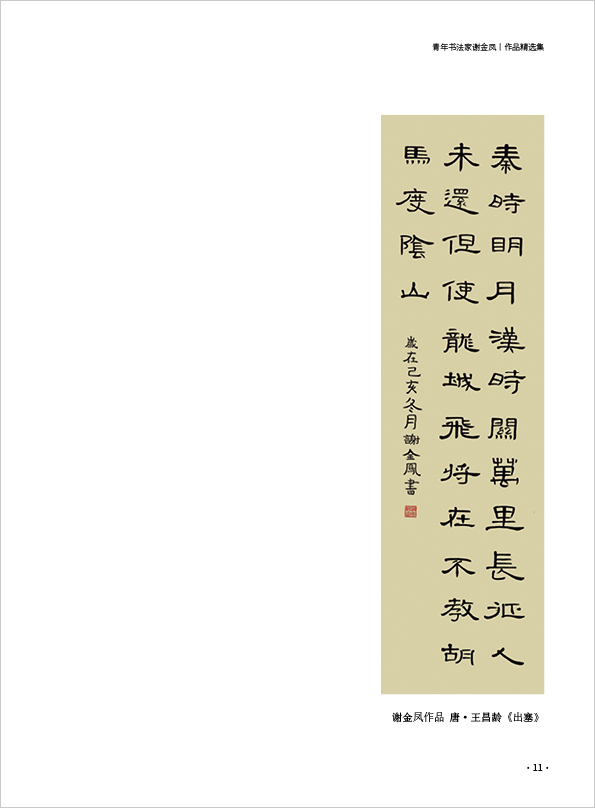 青年书法家谢金凤丨作品精选集
秦時明月漢時關萬里長征人
未還但使龍城飛将在不教胡
馬度陰山
歲在己亥冬月謝金鳳書
谢金凤作品 唐·王昌龄《出塞》
·11·